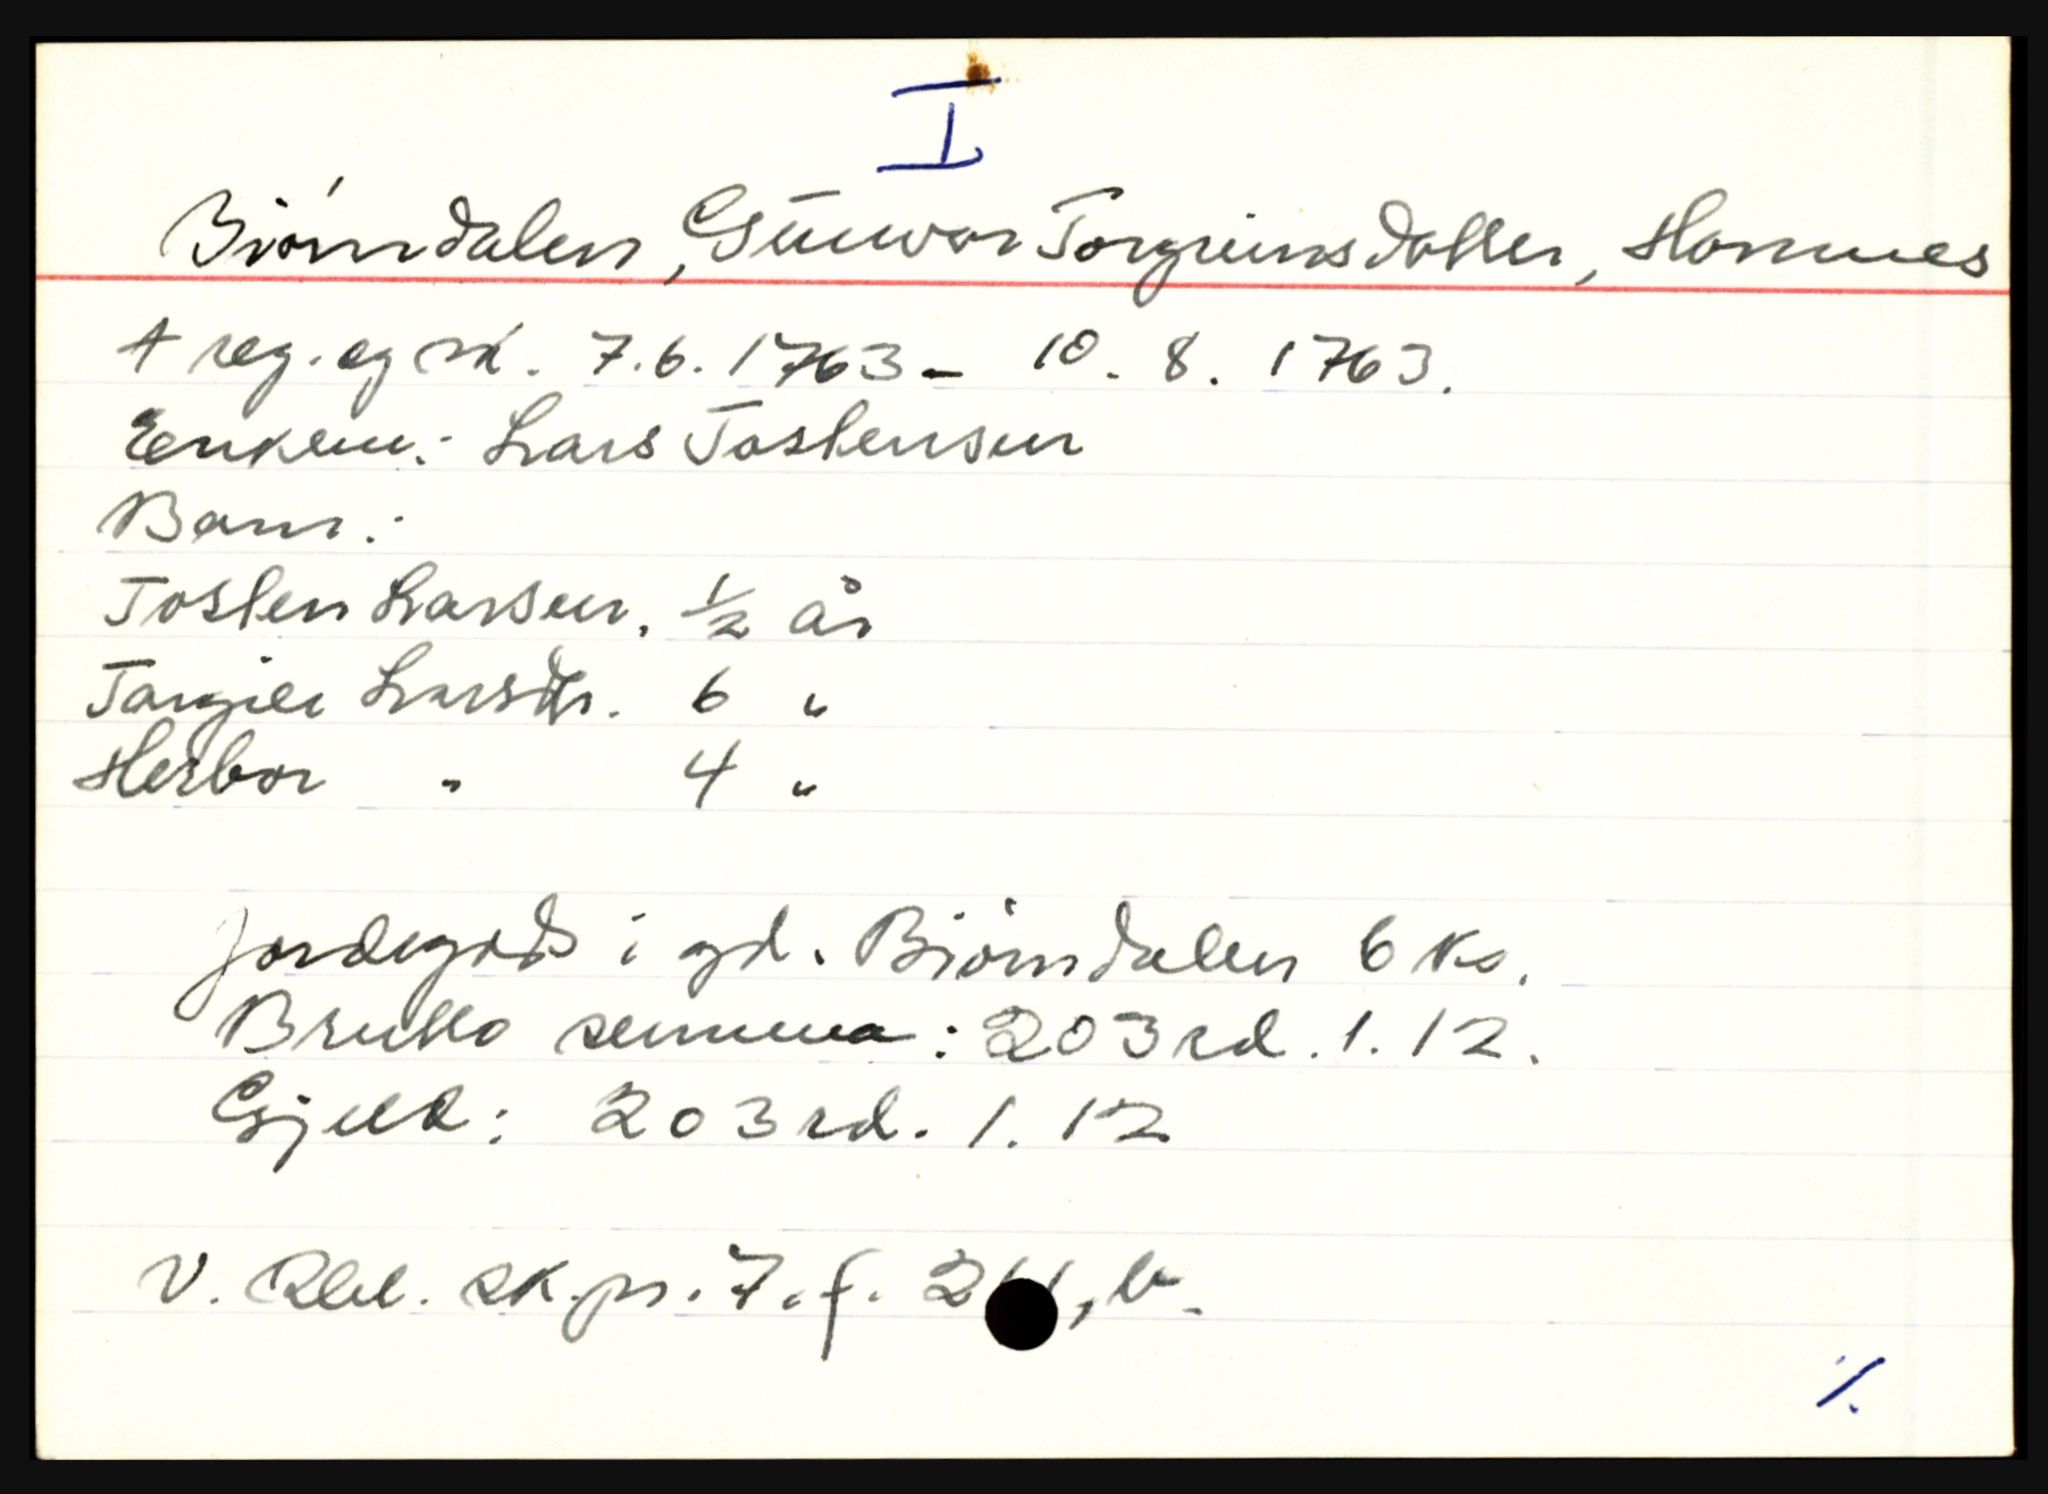 I
Bjørndalen, Gunvor Torgrimsdatter, Hommes
† reg. og sk. 7.6. 1763 - 10. 8. 1763.
Enkem.: Lars Tostensen
Barn:
Tosten Larsen. 1/2 år
Torgier Larsdtr. 6 "
Herbor " 4 "
Jordegods i gd. Bjørndalen 6 ks.
Brutto summa: 203 rd. 1. 12.
Gjeld: 203 rd. 1. 12
V. Rbl. sk.pr. 7. f. 2, b.